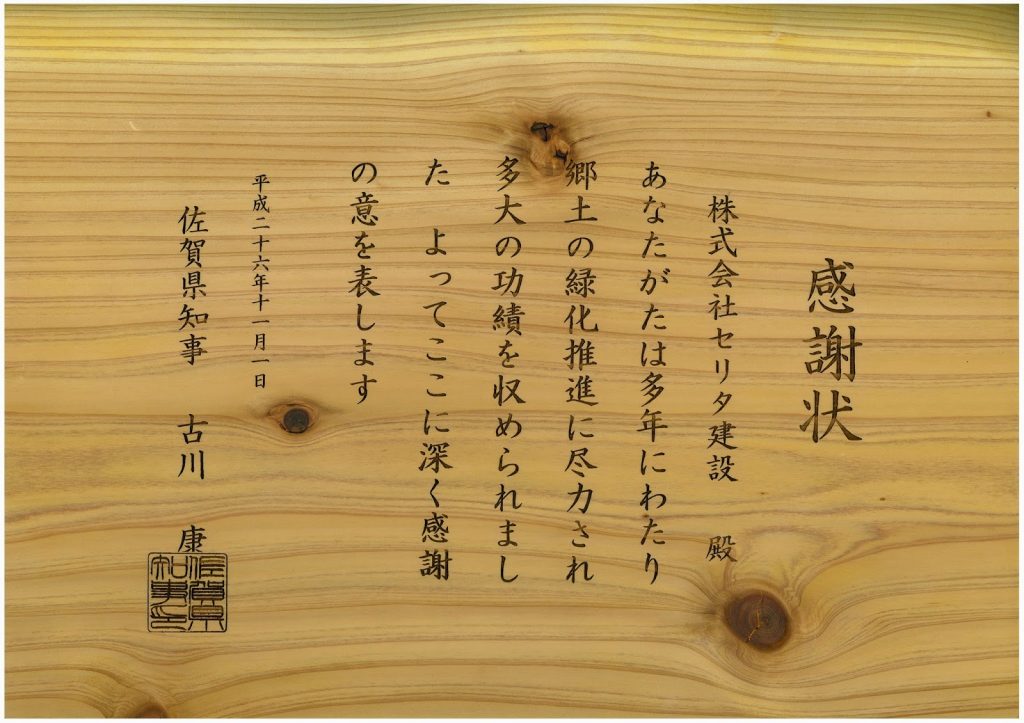 感謝状
株式会社セリタ建設 殿
あなたがたは多年にわたり
郷土の緑化推進に尽力され
多大の功績を収められまし
た よってここに深く感謝
の意を表します
平成二十六年十一月一日
佐賀県知事 古川 康
佐賀県
知事之印